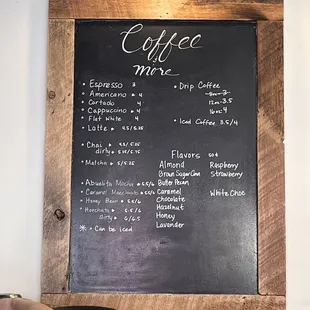 Coffee
& more
• Espresso 3
• Americano * 4
• Cortado 4
• Cappuccino * 4
• Flat White 4
• Latte * 4.5/5.25
• Chai * 4.5/5.25
dirty * 5.25/5.75
• Matcha * 5/5.25
• Abuelita Mocha * 5.5/6
• Caramel Macchiato * 5.5/6
• Honey Bean * 5.5/6
• Horchata * 5.5/6
Dirty * 6/6.5
* - Can be iced
• Drip Coffee
12oz - 3.5
16oz 4
• Iced Coffee 3.5/4
Flavors 50¢
Almond
Brown Sugar Cinn
Butter Pecan
Caramel
Chocolate
Hazelnut
Honey
Lavender
Raspberry
Strawberry
White Choc